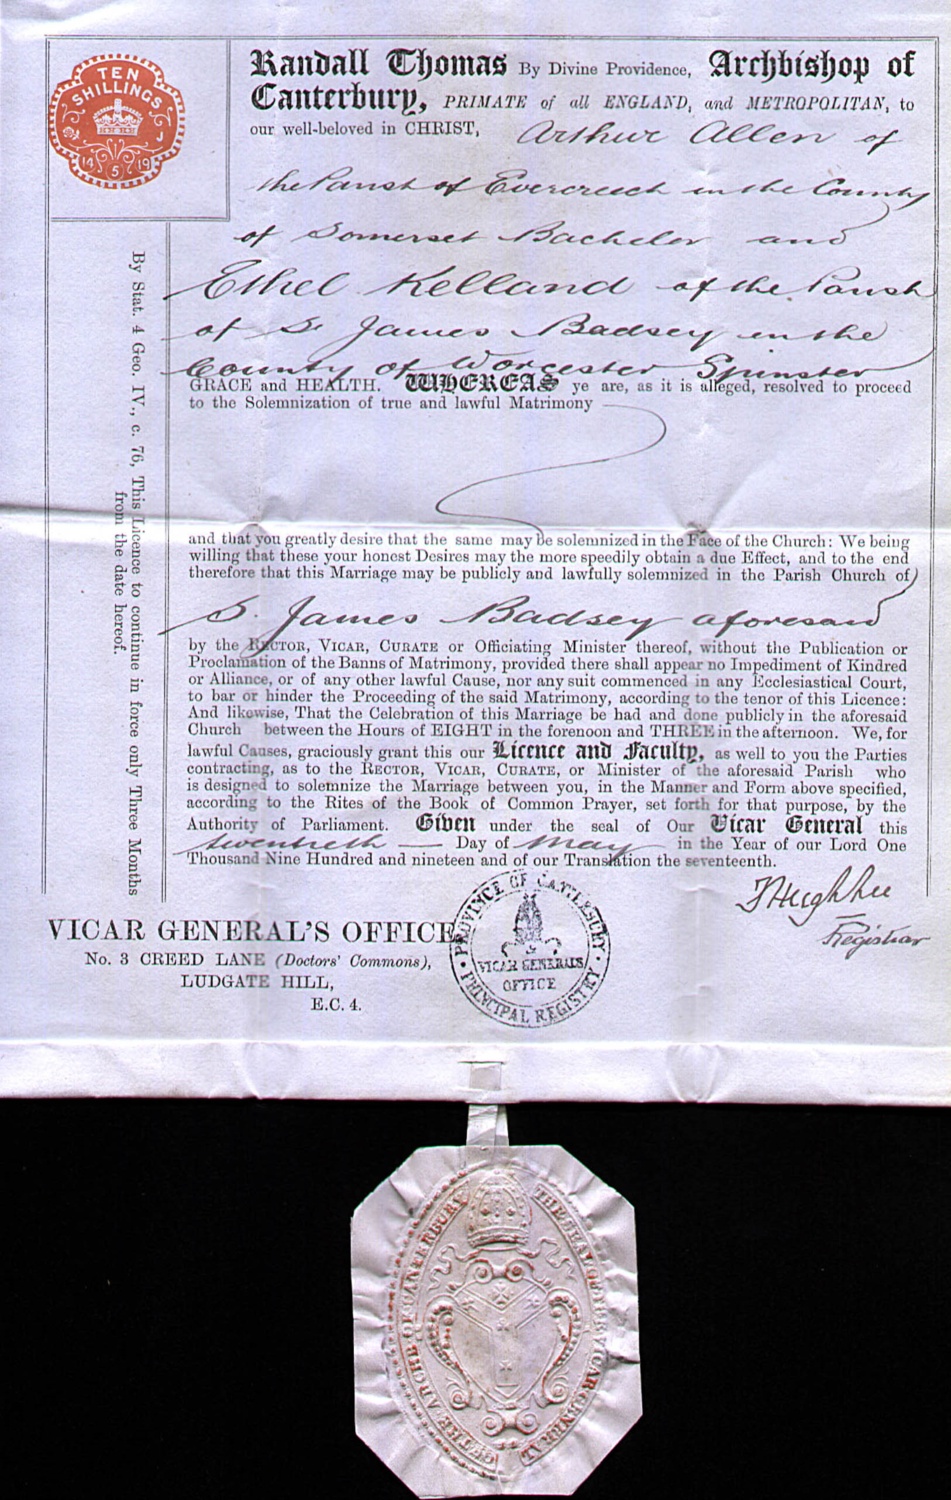 TEN
SHILLINGS
J
14 5 19
Randall Thomas By Divine Providence, Archbishop of
Canterbury, PRIMATE of all ENGLAND, and METROPOLITAN, to
our well-beloved in CHRIST, Arthur Allen of
the Parish of Evercreech in the County
of Somerset Bachelor and
Ethel Kelland of the Parish
of S. James Badsey in the
County of Worcester Spinster
GRACE and HEALTH. WHEREAS ye are, as it is alleged, resolved to proceed
to the Solemnization of true and lawful Matrimony
and that you greatly desire that the same may be solemnized in the Face of the Church: We being
willing that these your honest Desires may the more speedily obtain a due Effect, and to the end
therefore that this Marriage may be publicly and lawfully solemnized in the Parish Church of
S. James Badsey aforesaid
by the RECTOR, VICAR, CURATE or Officiating Minister thereof, without the Publication or
Proclamation of the Banns of Matrimony, provided there shall appear no Impediment of Kindred
or Alliance, or of any other lawful Cause, nor any suit commenced in any Ecclesiastical Court,
to bar or hinder the Proceeding of the said Matrimony, according to the tenor of this Licence:
And likewise, That the Celebration of this Marriage be had and done publicly in the aforesaid
Church between the Hours of EIGHT in the forenoon and THREE in the afternoon. We, for
lawful Causes, graciously grant this our Licence and Faculty, as well to you the Parties
contracting, as to the RECTOR, VICAR, CURATE, or Minister of the aforesaid Parish who
is designed to solemnize the Marriage between you, in the Manner and Form above specified,
according to the Rites of the Book of Common Prayer, set forth for that purpose, by the
Authority of Parliament. Given under the seal of Our Vicar General this
twentieth Day of May in the Year of our Lord One
Thousand Nine Hundred and nineteen and of our Translation the seventeenth.
By Stat. 4 Geo. IV., c. 76, This Licence to continue in force only Three Months
from the date hereof.
Registrar
VICAR GENERAL'S OFFICE
No. 3 CREED LANE (Doctors' Commons),
LUDGATE HILL,
E.C. 4.
PROVINCE OF CANTERBURY
VICAR GENERALS
OFFICE
PRINCIPAL REGISTRY
THE SEAL OF THE VICAR GENERAL
OF THE ARCHB. OF CANTERBURY